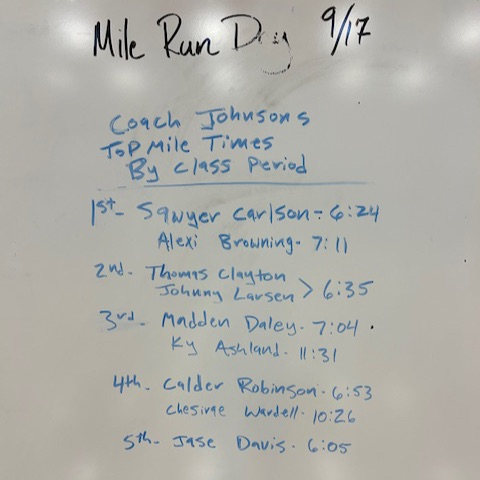 Mile Run Day 9/17
Coach Johnsons
Top Mile Times
By Class Period
1st- Sawyer Carlson - 6:24
Alexi Browning - 7:11
2nd- Thomas Clayton
Johnny Larsen > 6:35
3rd- Madden Daley - 7:04
Ky Ashland - 11:31
4th- Calder Robinson - 6:53
Chesirae Wardell - 10:26
5th- Jase Davis - 6:05